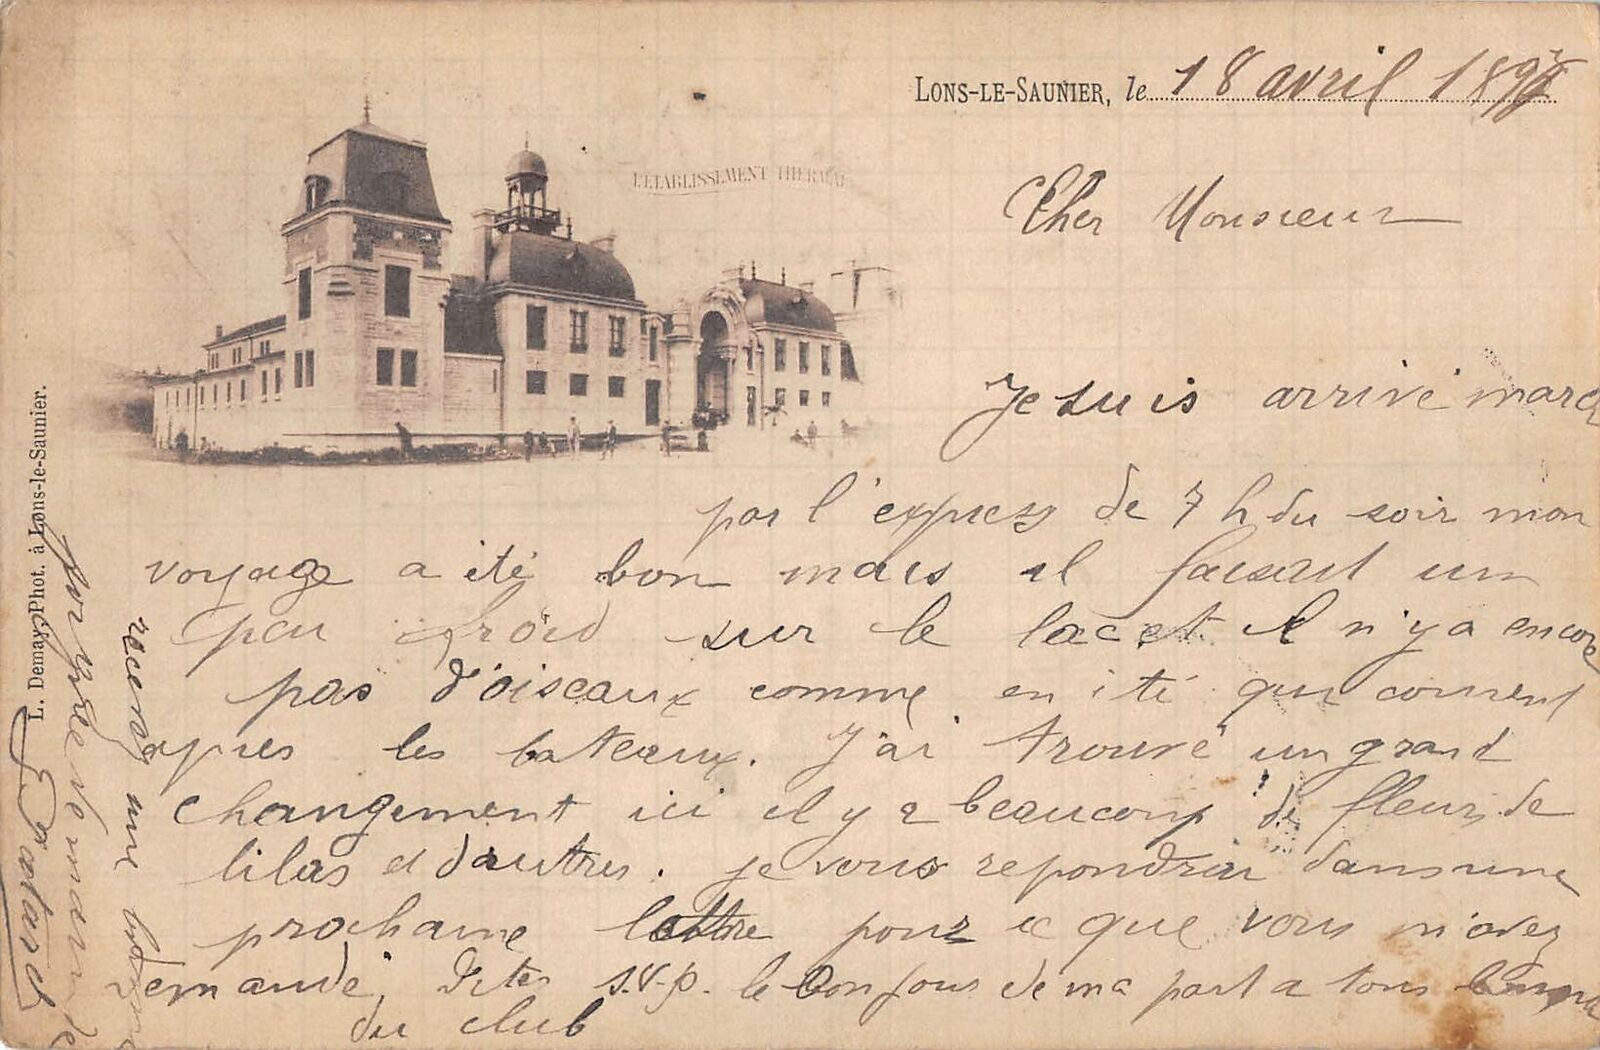 LONS-LE-SAUNIER, le 18 avril 189
L'ÉTABLISSEMENT THERMAL
Cher Monsieur
Je suis arrivé
par l'express de 7 h du soir mon
voyage a été bon mais il faisait un
peu froid sur le lac et il n'y a encore
pas d'oiseaux comme en été qui courent
apres les bateaux. J'ai trouvé un grand
changement ici il y a beaucoup de fleurs de
lilas et d'autres. je vous repondrai dans une
prochaine lettre pour ce que vous m'avez
demandé, Dites s.v.p. le bonjour de ma part a tous
du club
recevez une bonne
poignée de main de
L. Demay, Phot. à Lons-le-Saunier.